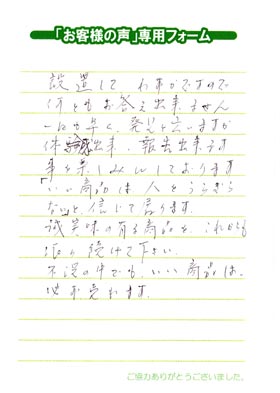 「お客様の声」専用フォーム
設置して わずかですので
何ともお答え出来ません
一日も早く 発見と言いますか
体験出来 報告出来ます
事を楽しみにしております
「いい商品は人をうらぎら
ない」と信じて居ります。
誠実味の有る商品を、これからも
送り続けて下さい
不況の中でも、いい商品は、
必ず売れます。
ご協力ありがとうございました。